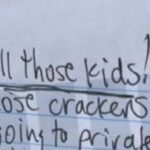 ll those kids!
ose crackers
going to private